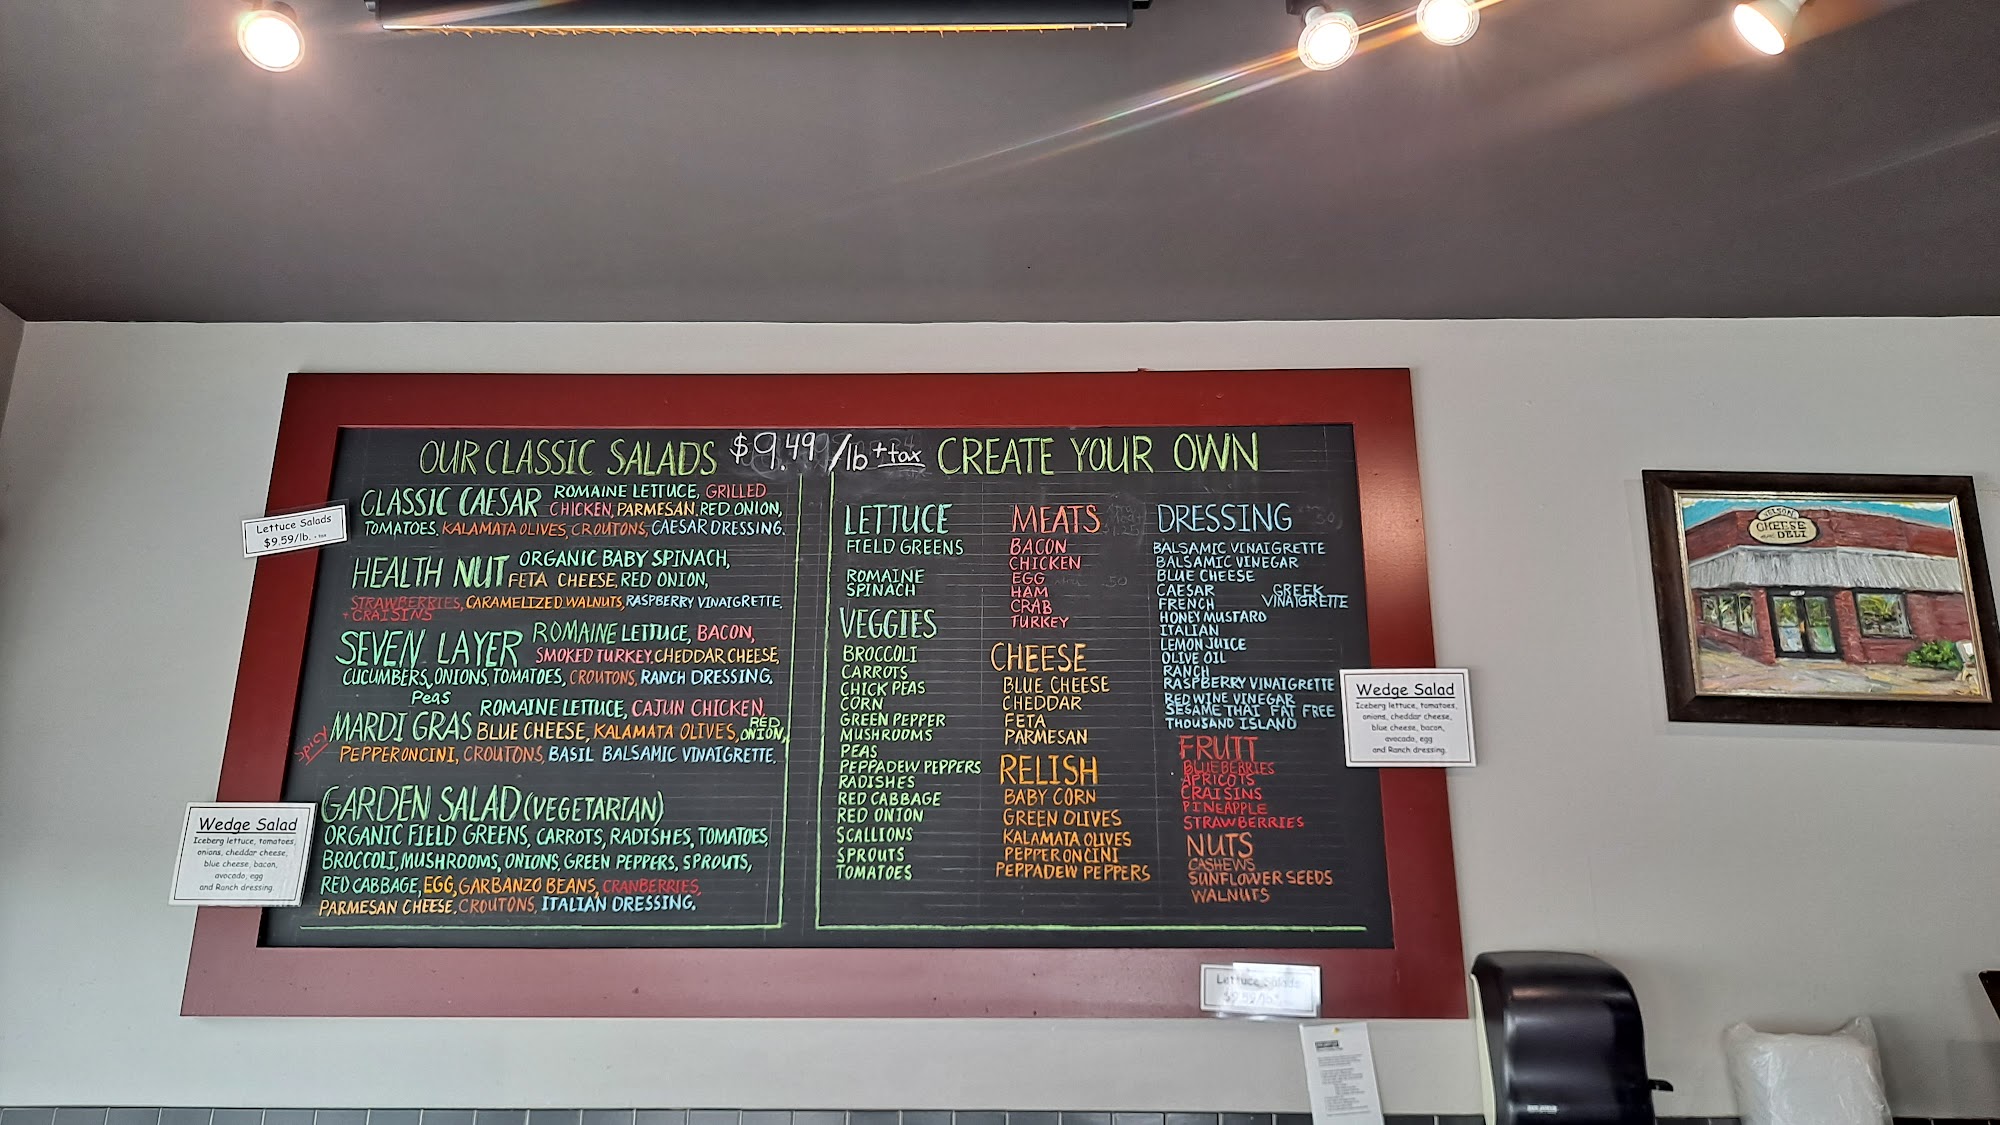 OUR CLASSIC SALADS $9.49/lb + tax CREATE YOUR OWN
CLASSIC CAESAR ROMAINE LETTUCE, GRILLED
CHICKEN, PARMESAN, RED ONION,
TOMATOES, KALAMATA OLIVES, CROUTONS, CAESAR DRESSING.
HEALTH NUT ORGANIC BABY SPINACH,
FETA CHEESE, RED ONION,
STRAWBERRIES, CARAMELIZED WALNUTS, RASPBERRY VINAIGRETTE.
+ CRAISINS
SEVEN LAYER ROMAINE LETTUCE, BACON,
SMOKED TURKEY, CHEDDAR CHEESE,
CUCUMBERS, ONIONS, TOMATOES, CROUTONS, RANCH DRESSING.
Peas
SPICY MARDI GRAS ROMAINE LETTUCE, CAJUN CHICKEN,
BLUE CHEESE, KALAMATA OLIVES, RED ONION,
PEPPERONCINI, CROUTONS, BASIL BALSAMIC VINAIGRETTE.
GARDEN SALAD (VEGETARIAN)
ORGANIC FIELD GREENS, CARROTS, RADISHES, TOMATOES,
BROCCOLI, MUSHROOMS, ONIONS, GREEN PEPPERS, SPROUTS,
RED CABBAGE, EGG, GARBANZO BEANS, CRANBERRIES,
PARMESAN CHEESE, CROUTONS, ITALIAN DRESSING.
LETTUCE
FIELD GREENS
ROMAINE
SPINACH
VEGGIES
BROCCOLI
CARROTS
CHICK PEAS
CORN
GREEN PEPPER
MUSHROOMS
PEAS
PEPPADEW PEPPERS
RADISHES
RED CABBAGE
RED ONION
SCALLIONS
SPROUTS
TOMATOES
MEATS
BACON
CHICKEN
EGG
HAM
CRAB
TURKEY
CHEESE
BLUE CHEESE
CHEDDAR
FETA
PARMESAN
RELISH
BABY CORN
GREEN OLIVES
KALAMATA OLIVES
PEPPERONCINI
PEPPADEW PEPPERS
DRESSING
BALSAMIC VINAIGRETTE
BALSAMIC VINEGAR
BLUE CHEESE
CAESAR
FRENCH
GREEK
VINAIGRETTE
HONEY MUSTARD
ITALIAN
LEMON JUICE
OLIVE OIL
RANCH
RASPBERRY VINAIGRETTE
RED WINE VINEGAR
SESAME THAI FAT FREE
THOUSAND ISLAND
FRUIT
BLUEBERRIES
APRICOTS
CRAISINS
PINEAPPLE
STRAWBERRIES
NUTS
CASHEWS
SUNFLOWER SEEDS
WALNUTS
Lettuce Salads
$9.59/lb. + tax
Wedge Salad
Iceberg lettuce, tomatoes,
onions, cheddar cheese,
blue cheese, bacon,
avocado, egg
and Ranch dressing.
Wedge Salad
Iceberg lettuce, tomatoes,
onions, cheddar cheese,
blue cheese, bacon,
avocado, egg
and Ranch dressing.
Lettuce Salads
$9.59/lb.
NELSON
CHEESE
DELI